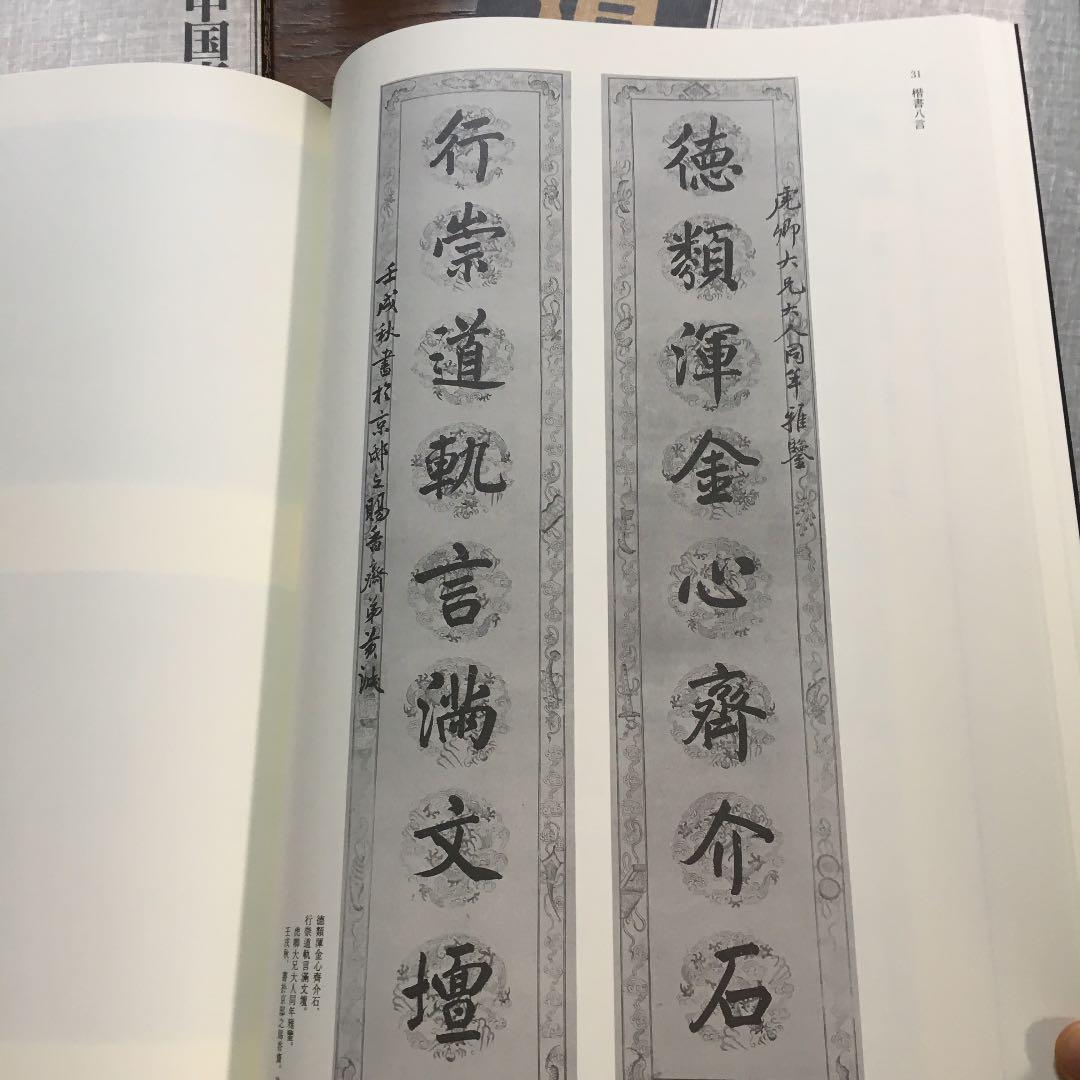 中国
31 楷書八言
虎卿大兄大人同年雅鑒
德類渾金心齊介石
行崇道軌言滿文壇
壬戌秋書於京邸之賜香齋弟黃
德類渾金心齊介石,
行崇道軌言滿文壇。
虎卿大兄大人同年雅鑒。
壬戌秋,書於京邸之賜香齋,